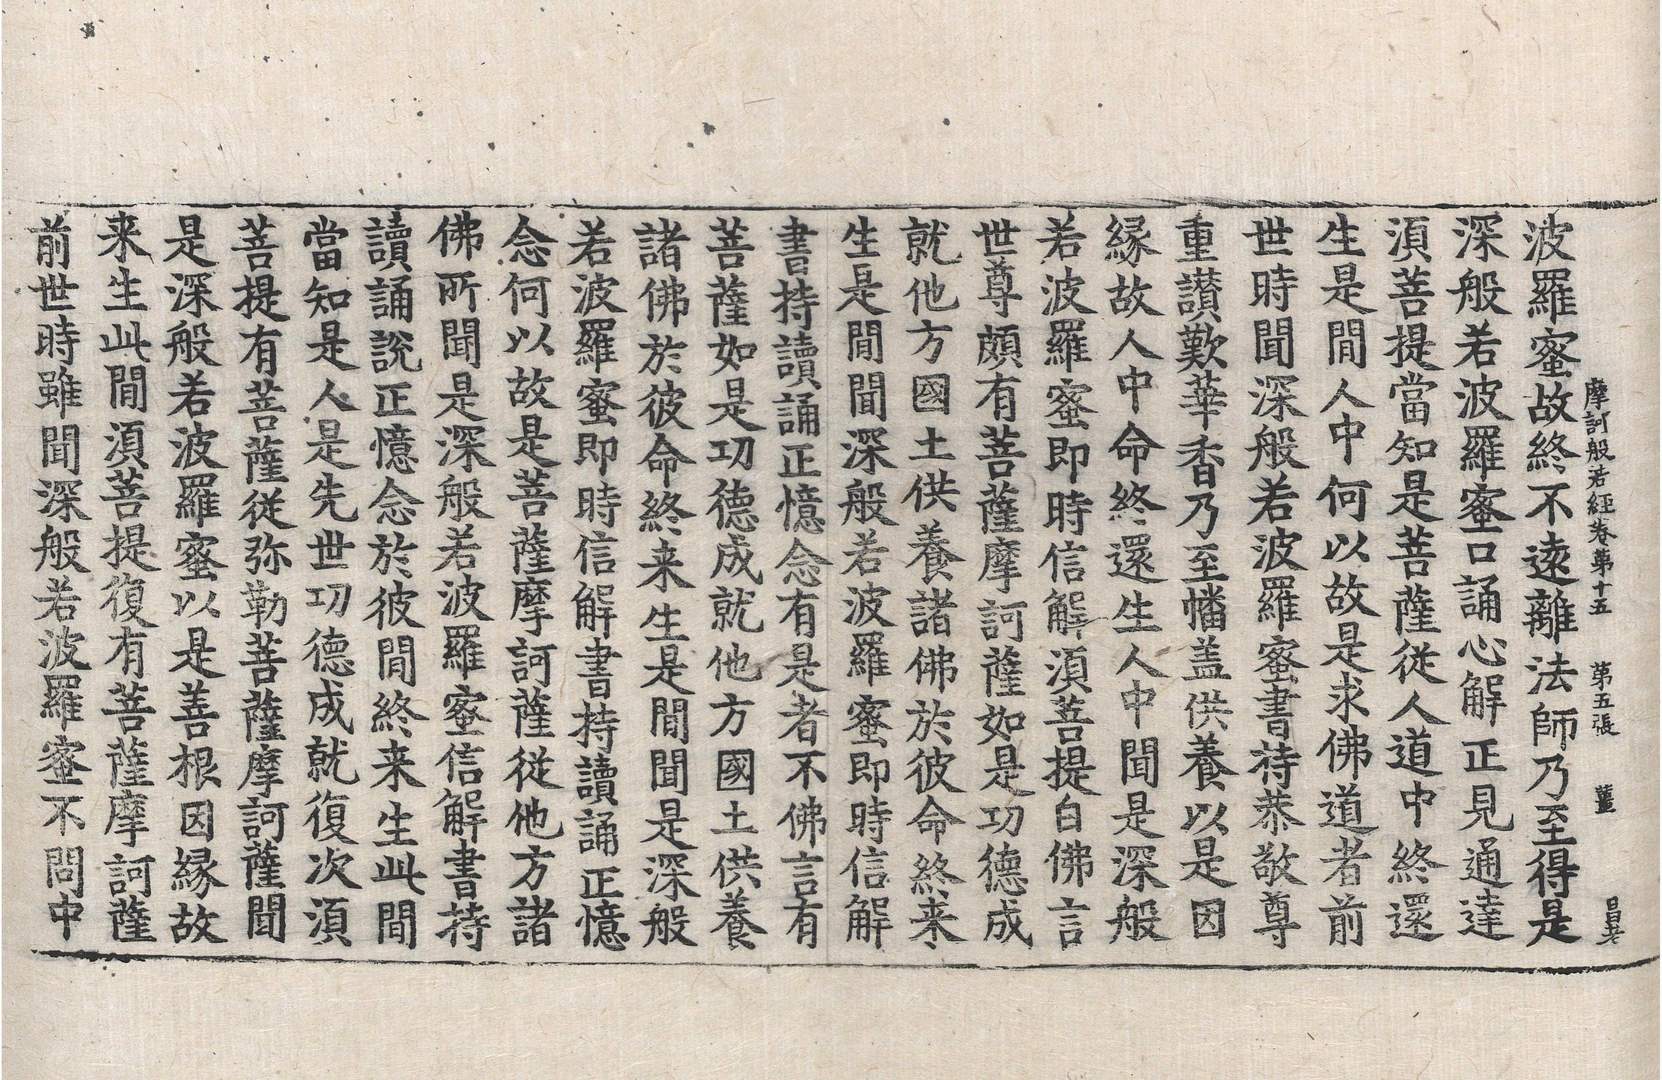 摩訶般若經卷第十五　第五張　薑　昌老
波羅蜜故終不遠離法師乃至得是
深般若波羅蜜口誦心解正見通達
湏菩提當知是菩薩從人道中終還
生是間人中何以故是求佛道者前
世時聞深般若波羅蜜書持恭敬尊
重讃歎華香乃至幡盖供養以是因
縁故人中命終還生人中聞是深般
若波羅蜜即時信解湏菩提白佛言
世尊頗有菩薩摩訶薩如是功德成
就他方國土供養諸佛於彼命終来
生是間聞深般若波羅蜜即時信解
書持讀誦正憶念有是者不佛言有
菩薩如是功德成就他方國土供養
諸佛於彼命終来生是間聞是深般
若波羅蜜即時信解書持讀誦正憶
念何以故是菩薩摩訶薩從他方諸
佛所聞是深般若波羅蜜信解書持
讀誦說正憶念於彼間終来生此間
當知是人是先世功德成就復次湏
菩提有菩薩從弥勒菩薩摩訶薩聞
是深般若波羅蜜以是善根因縁故
来生此間湏菩提復有菩薩摩訶薩
前世時雖聞深般若波羅蜜不問中